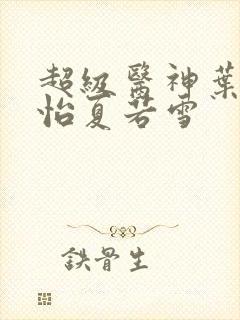 超級醫神葉
怡夏若雪
鉄骨生